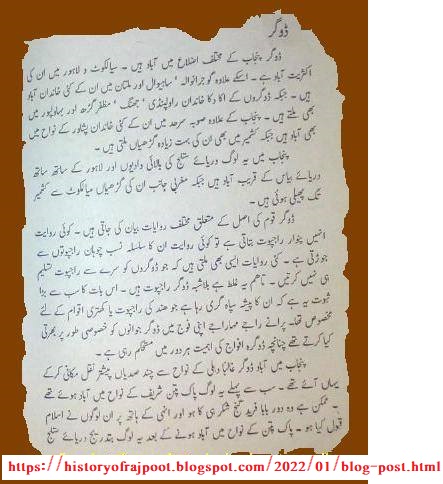 ڈوگر
ڈوگر پنجاب کے مختلف اضلاع میں آباد ہیں ۔ سیالکوٹ و لاہور میں ان کی
اکثریت آباد ہے ۔ اسکے علاوہ گوجرانوالہ ' ساہیوال اور ملتان میں ان کے کئی خاندان آباد
ہیں ۔ جبکہ ڈوگروں کے اکا دکا خاندان راولپنڈی ' جھنگ ' مظفر گڑھ اور بہاولپور میں
بھی ملتے ہیں ۔ پنجاب کے علاوہ صوبہ سرحد میں ان کے کئی خاندان پشاور کے نواح میں
بھی آباد ہیں جبکہ کشمیر میں بھی ان کی بہت زیادہ گڑھیاں ملتی ہیں ۔
پنجاب میں یہ لوگ دریائے ستلج کی بالائی وادیوں اور لاہور کے ساتھ ساتھ
دریائے بیاس کے قریب آباد ہیں جبکہ مغربی جانب ان کی گڑھیاں سیالکوٹ سے کشمیر
تک پھیلی ہوئی ہیں ۔
ڈوگر قوم کی اصل کے متعلق مختلف روایات بیان کی جاتی ہیں ۔ کوئی روایت
انہیں پنوار راجپوت بتاتی ہے تو کوئی روایت ان کا سلسلہ نسب چوہان راجپوتوں سے
جوڑتی ہے ۔ کئی روایات ایسی بھی ملتی ہیں کہ جو ڈوگروں کو سرے سے راجپوت تسلیم
ہی نہیں کرتیں ۔ تاہم یہ غلط ہے بلاشبہ ڈوگر راجپوت ہیں ۔ اس بات کا سب سے بڑا
ثبوت یہ ہے کہ ان کا پیشہ سپاہ گری رہا ہے جو ہند کی راجپوت یا کھتری اقوام کے لئے
مخصوص تھا۔ پرانے راجے مہاراجے اپنی فوج میں ڈوگر جوانوں کو خصوصی طور پر بھرتی
کیا کرتے تھے چنانچہ ڈوگرہ افواج کی اہمیت ہر دور میں مستحکم رہی ہے ۔
پنجاب میں آباد ڈوگر غالبا دہلی کے نواح سے چند صدیاں پیشتر نقل مکانی کر کے
یہاں آئے تھے ۔ سب سے پہلے یہ لوگ پاک پتن شریف کے نواح میں آباد ہوئے تھے
۔ ممکن ہے وہ دور بابا فرید گنج شکر ہی کا ہو اور انہی کے ہاتھ پر ان لوگوں نے اسلام
قبول کیا ہو ۔ پاک پتن کے نواح میں آباد ہونے کے بعد یہ لوگ بتدریج دریائے ستلج
https://historyofrajpoot.blogspot.com/2022/01/blog-post.html